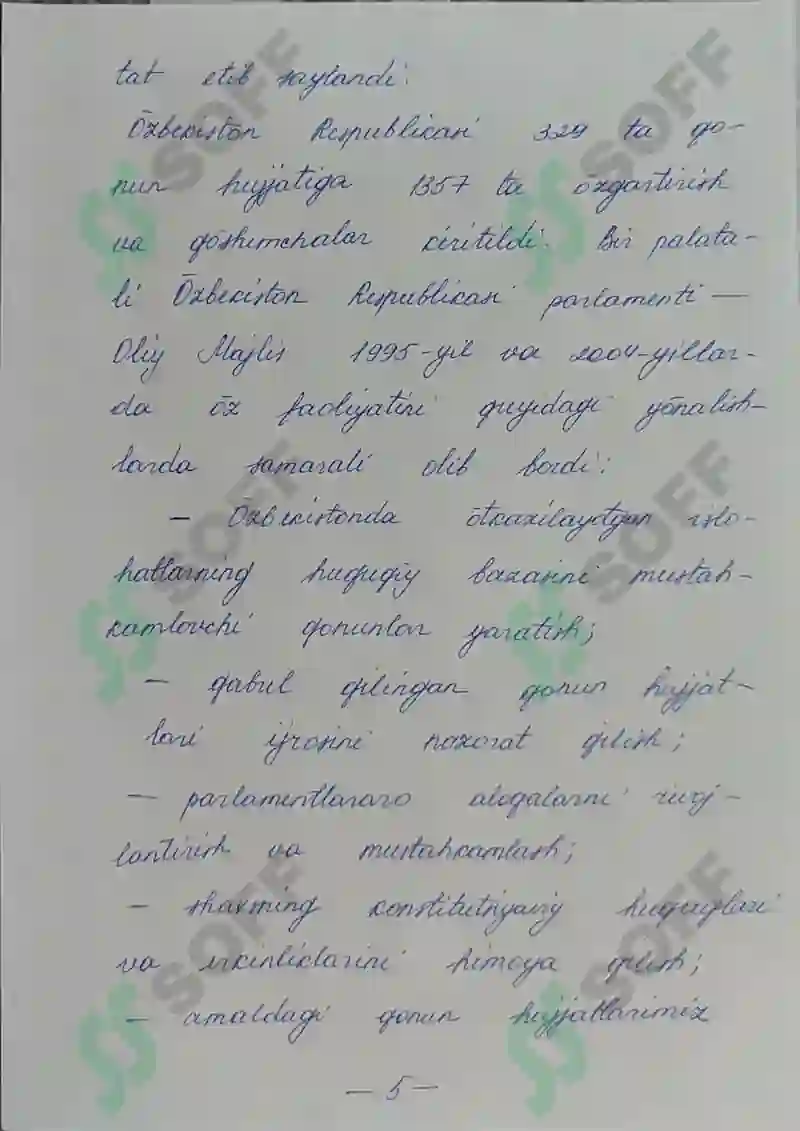 tat etib saylandi.
Ōzbekiston Respublikasi 329 ta qo-
nun hujjatiga 1357 ta ōzgartirish
va qōshimchalar kiritildi. Bir palata-
li Ōzbekiston Respublikasi parlamenti —
Oliy Majlis 1995-yil va 2004-yillar-
da ōz faoliyatini quyidagi yōnalish-
larda samarali olib bordi:
— Ōzbekistonda ōtkazilayotgan islo-
hatlarning huquqiy bazasini mustah-
kamlovchi qonunlar yaratish;
— qabul qilingan qonun hujjat-
lari ijrosini nazorat qilish;
— parlamentlararo aloqalarni rivoj-
lantirish va mustahkamlash;
— shaxsning konstitutsiyaviy huquqlari
va erkinliklarini himoya qilish;
— amaldagi qonun hujjatlarimiz
— 5 —
SOFF
SOFF
SOFF
SOFF
SOFF
SOFF